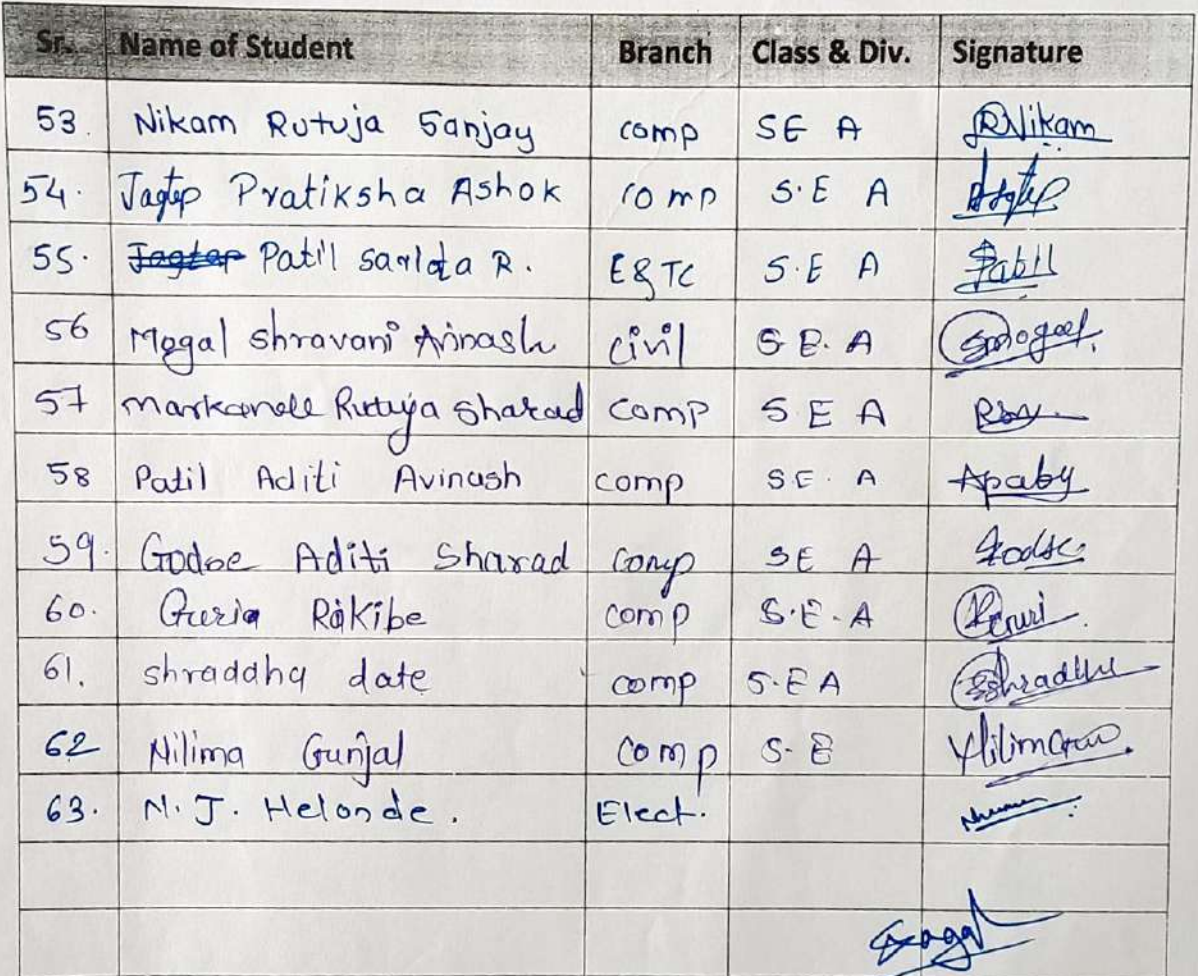 Sr. Name of Student Branch Class & Div. Signature
53. Nikam Rutuja Sanjay comp SE A RNikam
54. Jagtap Pratiksha Ashok comp S.E A
55. Jagtap Patil R. E&TC S.E A Patil
56 Mogal Shravani Avinash civil S E. A Smogal.
57 Rutuja Sharad comp S E A
58 Patil Aditi Avinash comp SE. A
59. Godse Aditi Sharad Comp SE A Godse
60. Rakibe comp S.E.A
61. shraddha date comp S.E A
62 Nilima Gunjal comp S-E
63. N. J. Helonde. Elect.